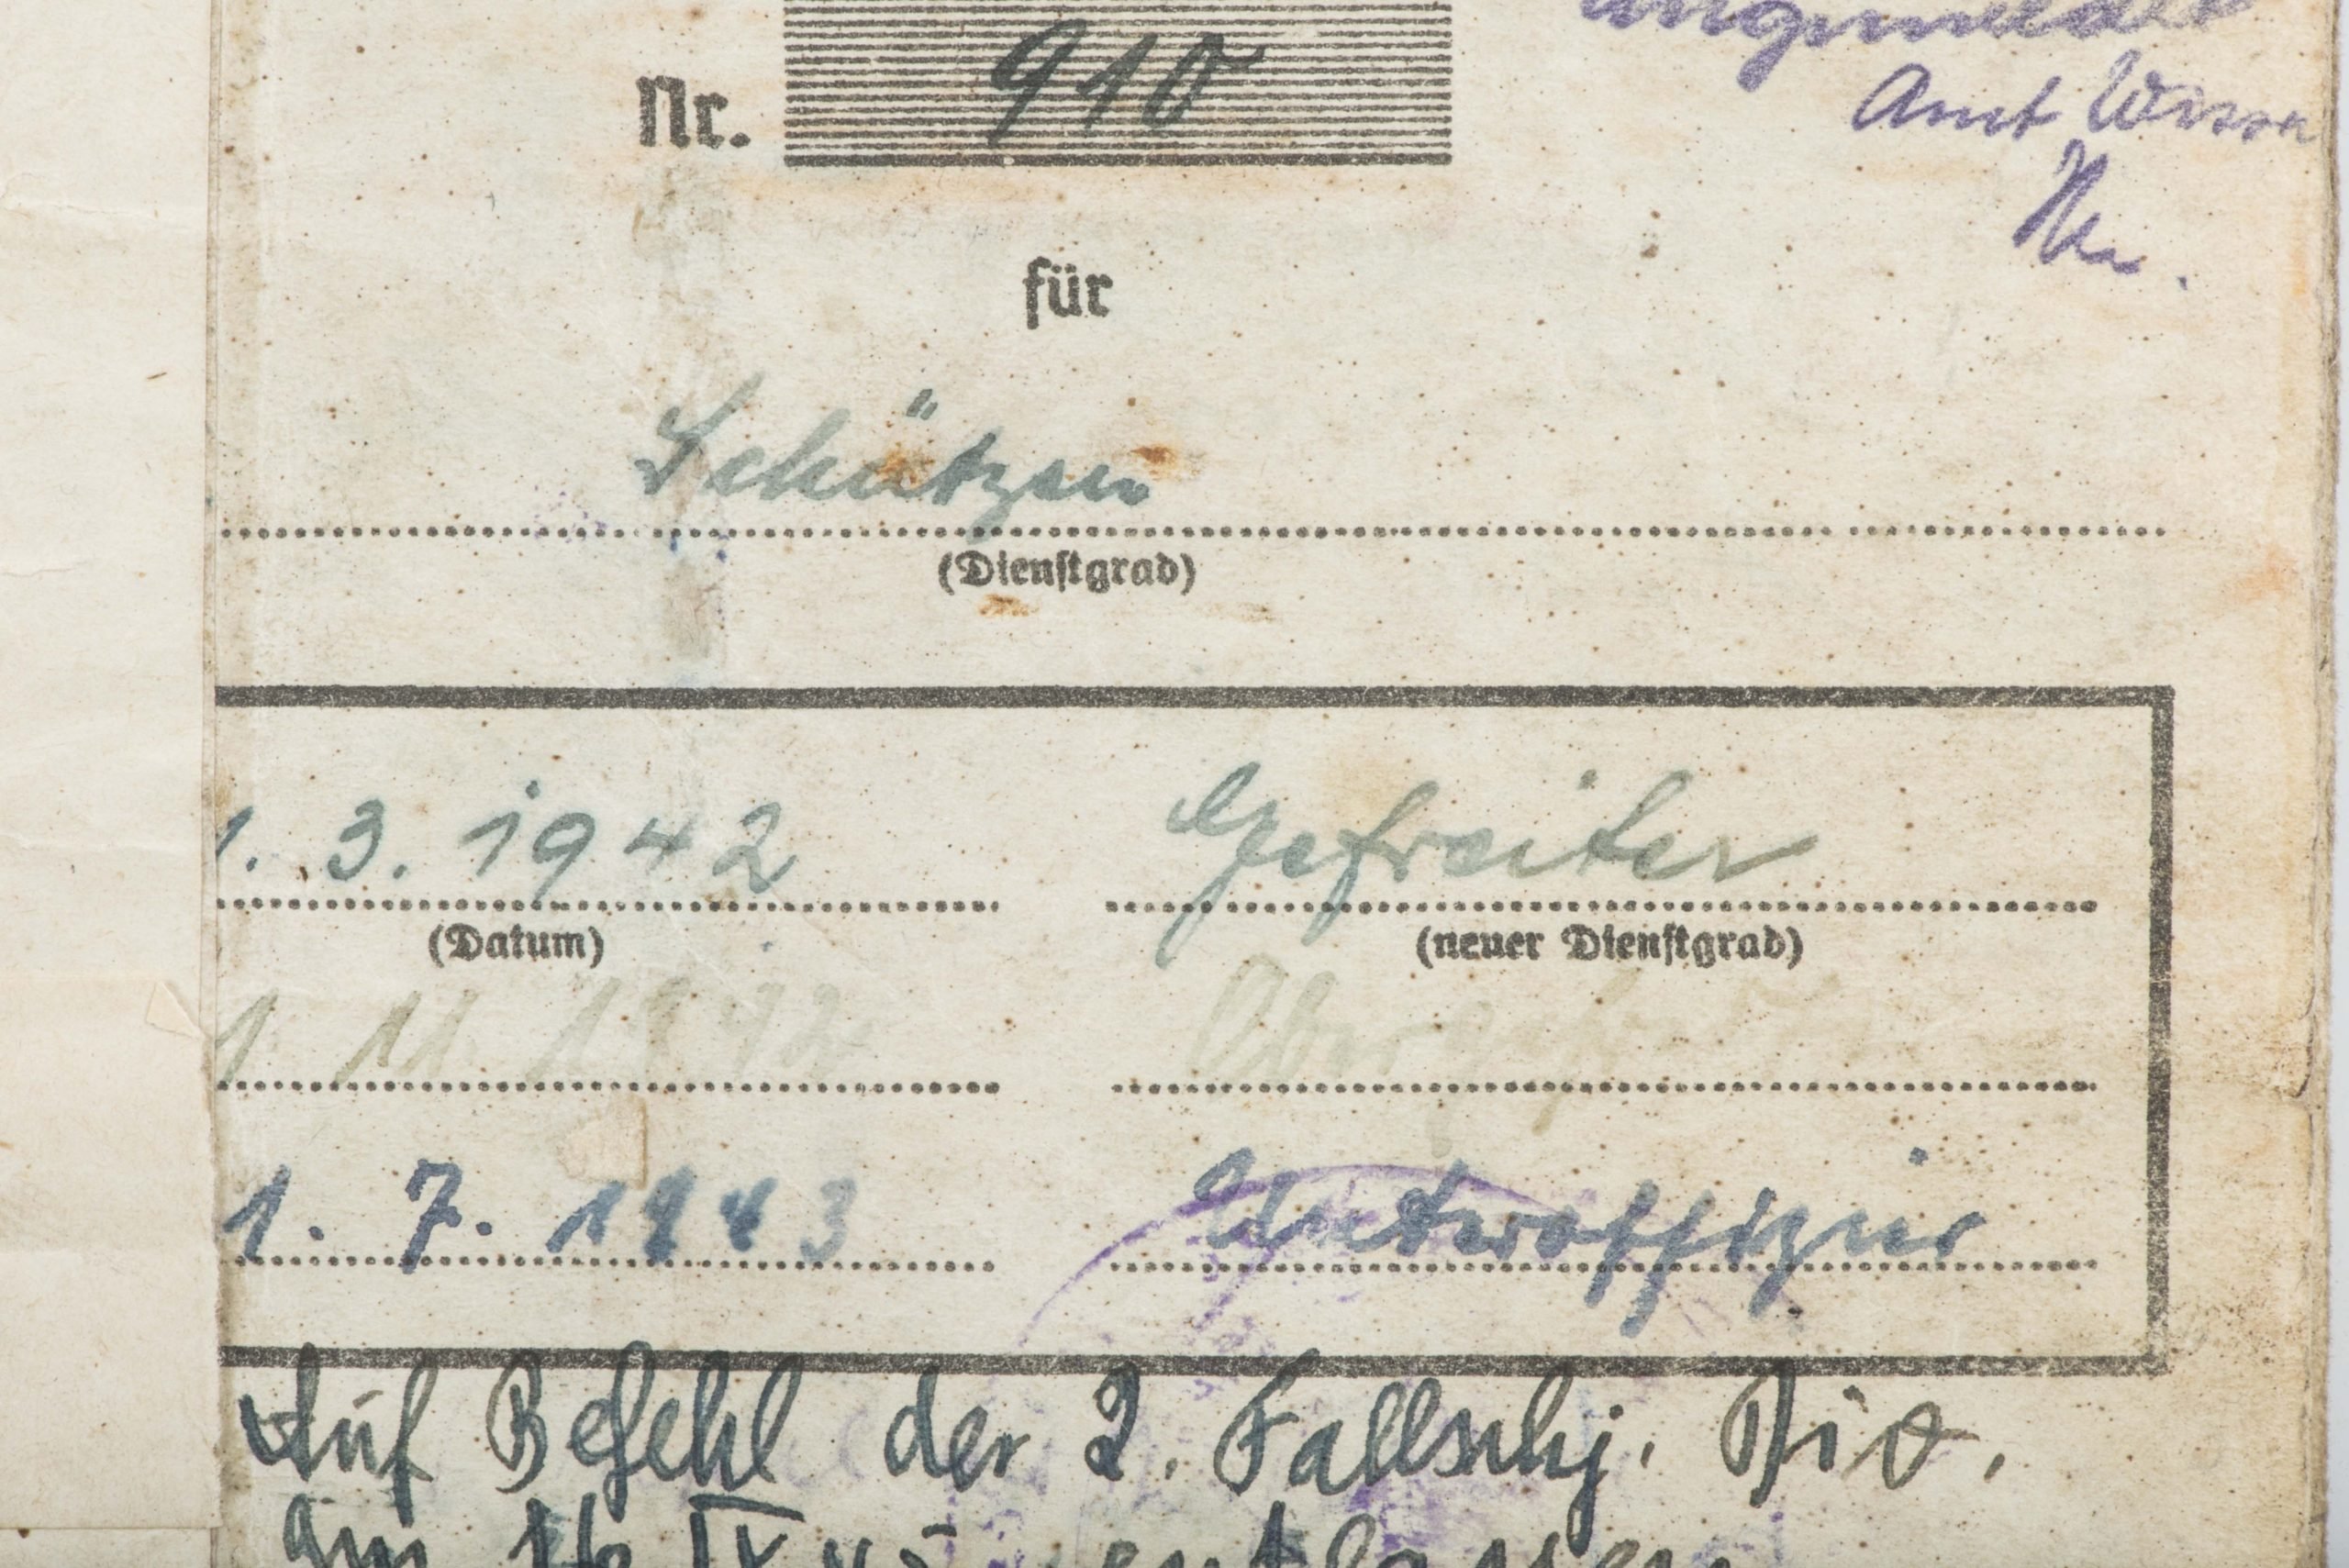 angemeldet
Nr. 910
Amt Wissen
für
Schützen
(Dienstgrad)
1. 3. 1942 Gefreiter
(Datum) (neuer Dienstgrad)
1 11 1942 Obergefr
1. 7. 1943 Unteroffizier
Auf Befehl der 2. Fallschj. Div.
am 16 IV 45 entlassen